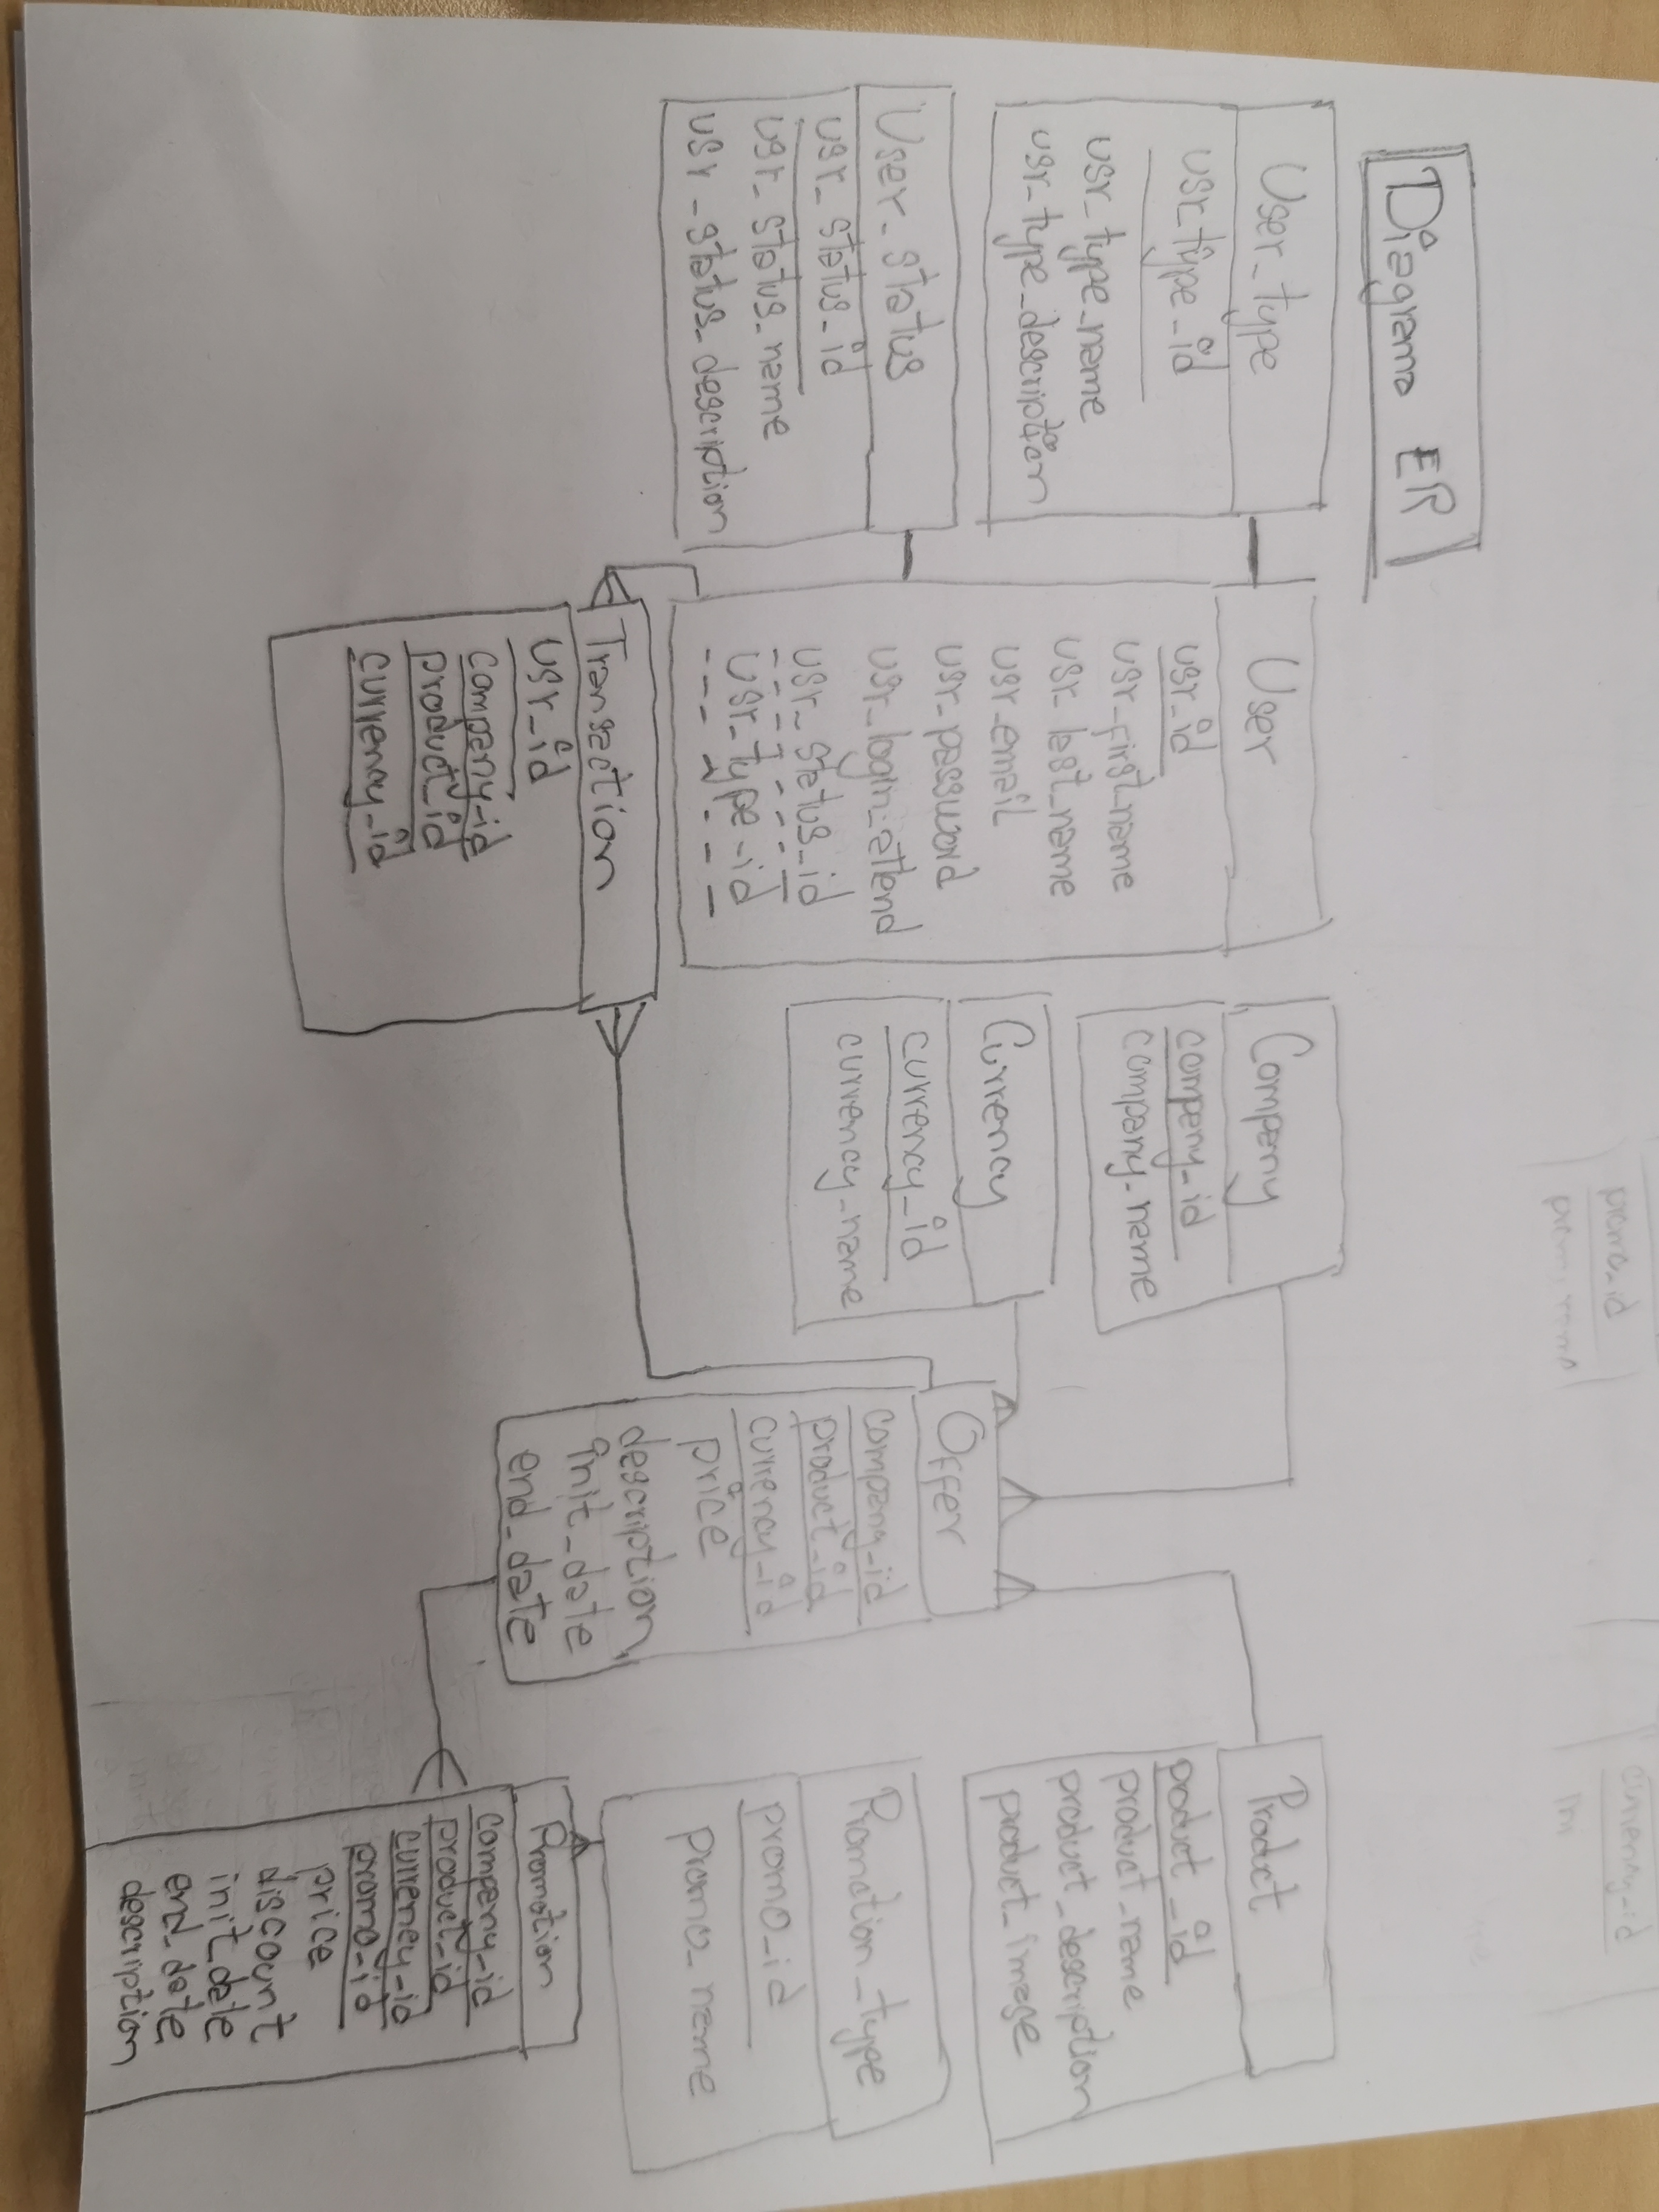 Diagrama ER
User_type
usr_type_id
usr_type_name
usr_type_description
User_status
usr_status_id
usr_status_name
usr_status_description
User
usr_id
usr_first_name
usr_last_name
usr_email
usr_password
usr_login_attend
usr_status_id
usr_type_id
Transaction
usr_id
company_id
product_id
currency_id
Company
company_id
company_name
Currency
currency_id
currency_name
Offer
company_id
product_id
currency_id
price
description
init_date
end_date
Product
product_id
product_name
product_description
product_image
Promotion_type
promo_id
promo_name
Promotion
company_id
product_id
currency_id
promo_id
price
discount
init_date
end_date
description
promo_id